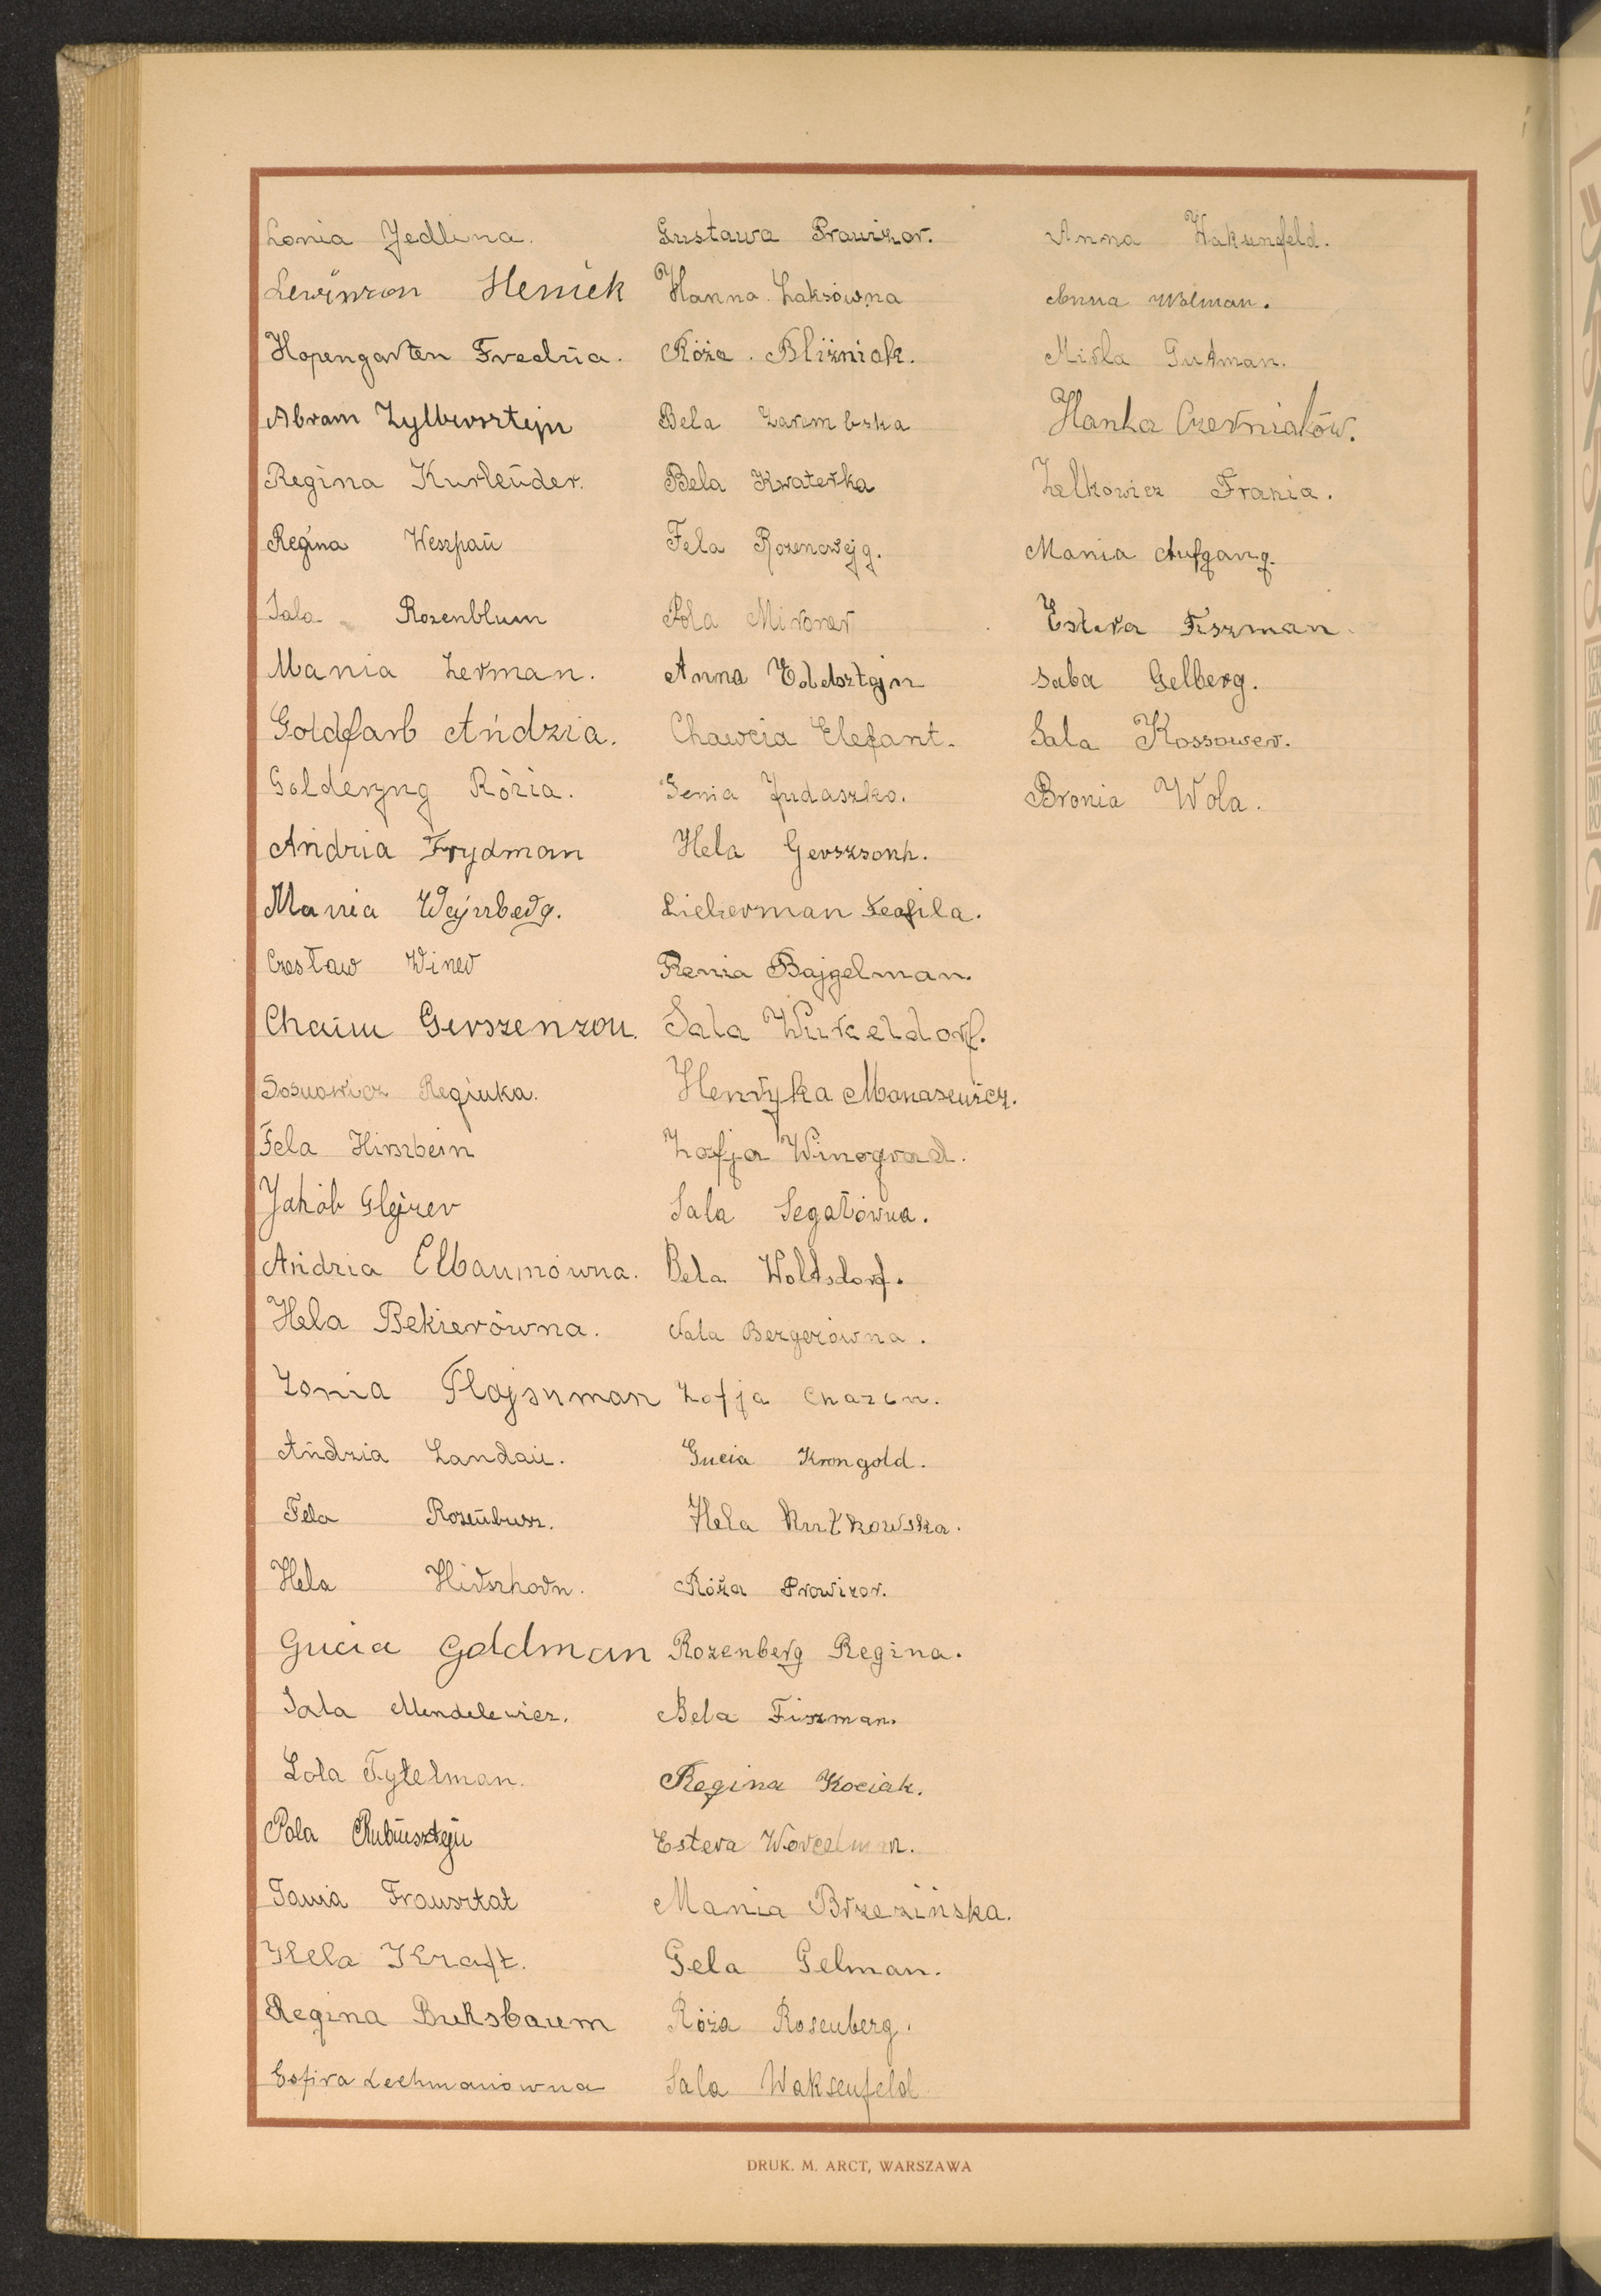 Lonia Jedlina.
Lewinzon Heniek
Hopengarten Fredzia.
Abram Zylbersztejn
Regina Kurlender.
Regina Weszpan
Sala Rozenblum
Mania Lerman.
Goldfarb Andzia.
Golderyng Rózia.
Andzia Frydman
Mania Wajnberg.
Czesław Winer
Chaim Gerszenzon.
Sosnowicz Reginka.
Fela Hirszbein
Jakób Glejzer
Andzia Elbaumówna.
Hela Bekierówna.
Zonia Flajszman
Andzia Landau.
Fela Rozenbusz.
Hela Hirszhorn.
Gucia Goldman
Sala Mendelewicz.
Lola Tytelman.
Pola Rubinsztejn
Tania Frausztat
Hela Kraft.
Regina Buksbaum
Esfira Lechmanówna
Gustawa Prowizor.
Hanna Laksówna
Róża Bliźniak.
Bela Zarembska
Bela Kwaterka
Fela Rozencwejg.
Pola Mironer
Anna Goldsztejn
Chawcia Elefant.
Genia Judaszko.
Hela Gerszsonh.
Lieberman Teofila.
Renia Bajgelman.
Sala Winkeldorf.
Henryka Manasewicz.
Zofja Winograd.
Sala Segałówna.
Bela Woltsdorf.
Sala Bergerówna.
Zofja Chazen.
Gucia Krongold.
Hela Rutkowska.
Róża Prowizor.
Rozenberg Regina.
Bela Fiszman.
Regina Kociak.
Estera Worcelman.
Mania Brzezińska.
Gela Gelman.
Róża Rosenberg.
Sala Waksenfeld
Anna Waksenfeld.
Anna Wolman.
Mirla Gutman.
Hanka Czerniaków.
Zelkowicz Frania.
Mania Aufgang.
Estera Fiszman.
Saba Gelberg.
Sala Kossower.
Bronia Wola.
DRUK. M. ARCT, WARSZAWA